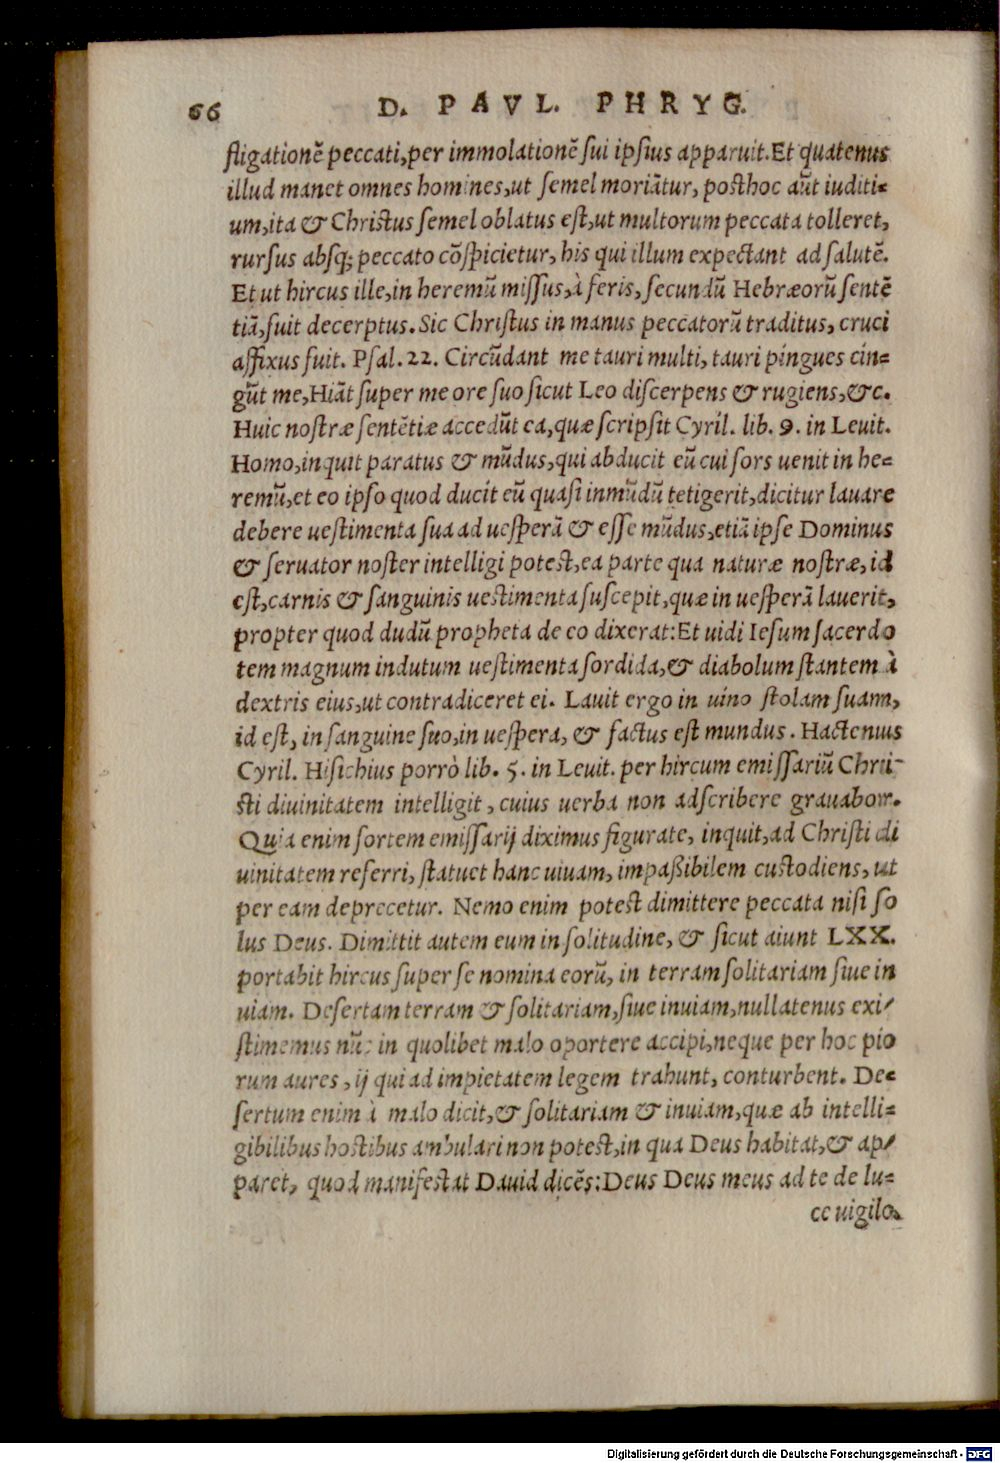 66 D. PAVL. PHRYG.
fligationẽ peccati,per immolationẽ sui ipsius apparuit.Et quatenus
illud manet omnes homines,ut semel moriãtur, posthoc aũt iuditi=
um,ita & Christus semel oblatus est,ut multorum peccata tolleret,
rursus absq; peccato cõspicietur, his qui illum expectant ad salutẽ.
Et ut hircus ille,in heremũ missus,à feris, secundũ Hebræorũ sentẽ
tiã,fuit decerptus. Sic Christus in manus peccatorũ traditus, cruci
affixus fuit. Psal. 22. Circũdant me tauri multi, tauri pingues cin=
gũt me,Hiãt super me ore suo sicut Leo discerpens & rugiens,&c.
Huic nostræ sentẽtiæ accedũt ea,quæ scripsit Cyril. lib. 9. in Leuit.
Homo,inquit paratus & mũdus,qui abducit eũ cui sors uenit in he=
remũ,et eo ipso quod ducit eũ quasi inmũdũ tetigerit,dicitur lauare
debere uestimenta sua ad uesperã & esse mũdus,etiã ipse Dominus
& seruator noster intelligi potest,ea parte qua naturæ nostræ,id
est,carnis & sanguinis uestimenta suscepit,quæ in uesperã lauerit,
propter quod dudũ propheta de eo dixerat:Et uidi Iesum sacerdo
tem magnum indutum uestimenta sordida,& diabolum stantem à
dextris eius,ut contradiceret ei. Lauit ergo in uino stolam suam,
id est, in sanguine suo,in uespera, & factus est mundus. Hactenus
Cyril. Hisichius porrò lib. 5. in Leuit. per hircum emissariũ Chri-
sti diuinitatem intelligit, cuius uerba non adscribere grauabor.
Quia enim sortem emissarij diximus figurate, inquit,ad Christi di
uinitatem referri, statuet hanc uiuam, impaßibilem custodiens, ut
per eam deprecetur. Nemo enim potest dimittere peccata nisi so
lus Deus. Dimittit autem eum in solitudine, & sicut aiunt LXX.
portabit hircus super se nomina eorũ, in terram solitariam siue in
uiam. Desertam terram & solitariam,siue inuiam,nullatenus exi-
stimemus nũc in quolibet malo oportere accipi,neque per hoc pio
rum aures, ij qui ad impietatem legem trahunt, conturbent. De=
sertum enim à malo dicit,& solitariam & inuiam,quæ ab intelli=
gibilibus hostibus ambulari non potest,in qua Deus habitat,& ap-
paret, quod manifestat Dauid dicẽs:Deus Deus meus ad te de lu=
ce uigilo,
Digitalisierung gefördert durch die Deutsche Forschungsgemeinschaft - DFG